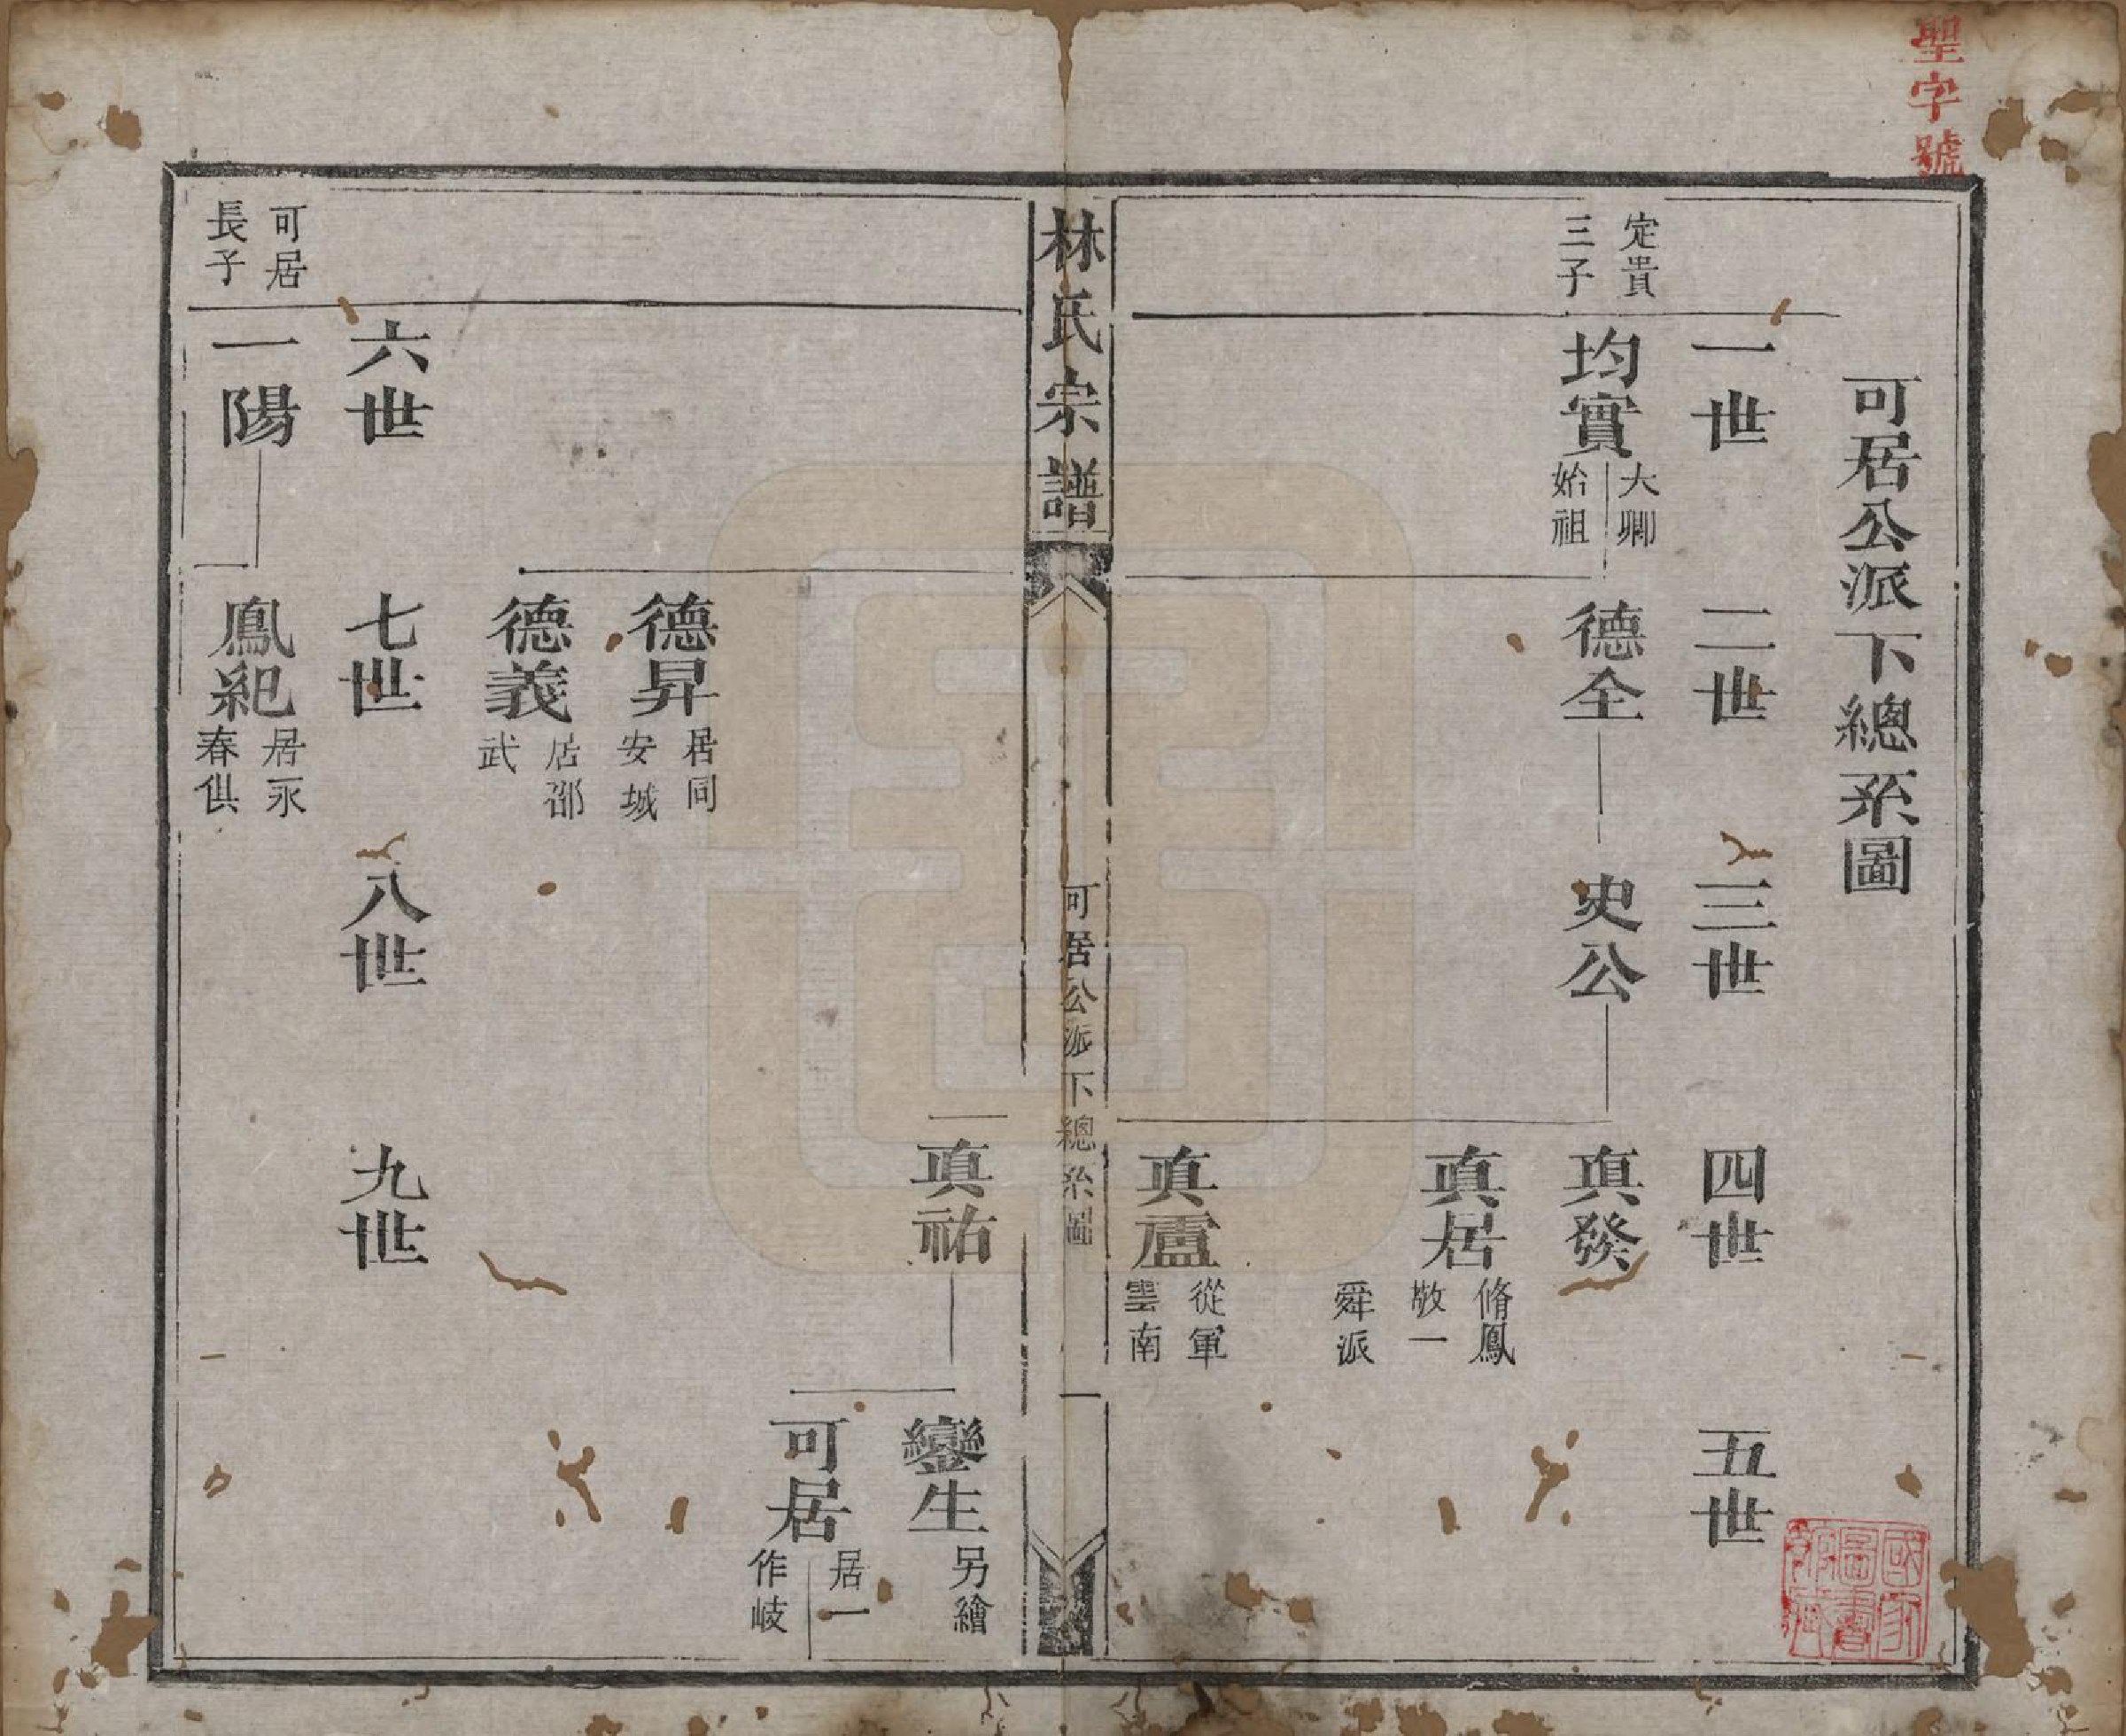 聖字號
可居公派下總系圖
一世
二世
三世
四世
五世
定貴
三子
均實
大鄉
始祖
德全
史公
真發
真居
脩鳳
敬一
舜派
真廬
從軍
雲南
林氏宗譜
可居公派下總系圖
一
真祐
鑾生
另繪
可居
居一
作岐
德昇
居同
安城
德義
居邵
武
六世
七世
八世
九世
可居
長子
一陽
鳳紀
居永
春供
國家
圖書
館藏